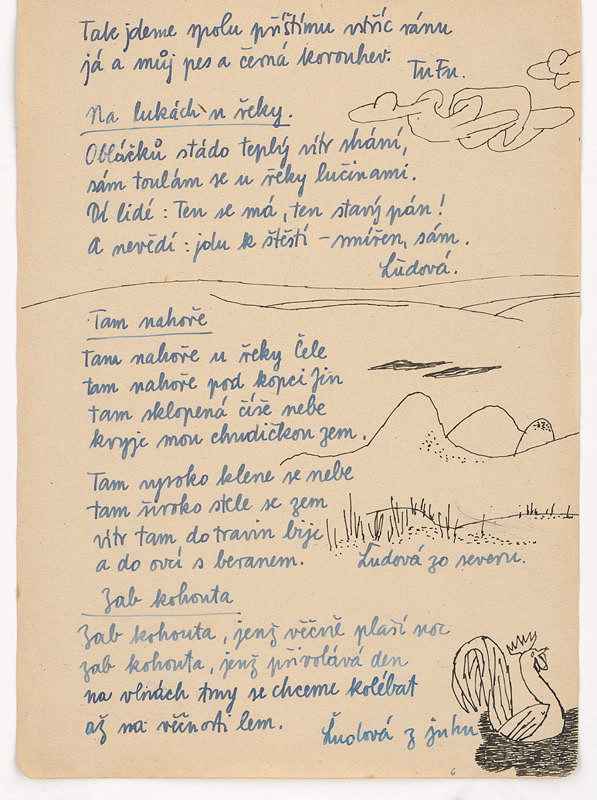 Tak jdeme spolu příštímu vstříc ránu
já a můj pes a černá korouhev.
Tu Fu.
Na lukách u řeky.
Obláčků stádo teplý vítr shání,
sám toulám se u řeky lučinami.
Dí lidé: Ten se má, ten starý pán!
A nevědí: jdu k štěstí – smířen, sám.
Lidová.
Tam nahoře
Tam nahoře u řeky Čele
tam nahoře pod kopci Jin
tam sklopená číše nebe
kryje mou chudičkou zem.
Tam vysoko klene se nebe
tam široko stele se zem
vítr tam do travin bije
a do ovcí s beranem.
Lidová ze severu.
Zab kohouta
Zab kohouta, jenž věčně plaší noc
zab kohouta, jenž přivolává den
na vlnách tmy se chceme kolébat
až na věčnosti lem.
Lidová z jihu
6